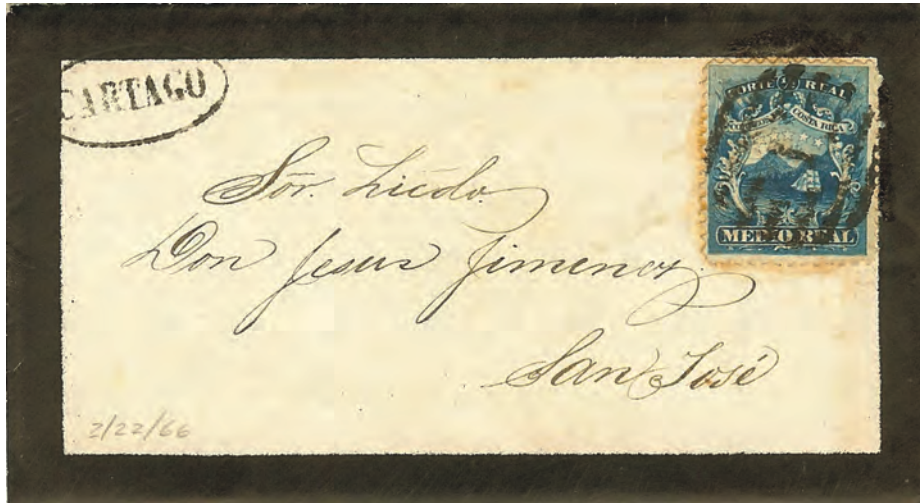 CARTAGO
PORTE REAL
COSTA RICA
MEDIO REAL
Sõr. Licdo.
Don Jesus Jimenez
San José
2/22/66